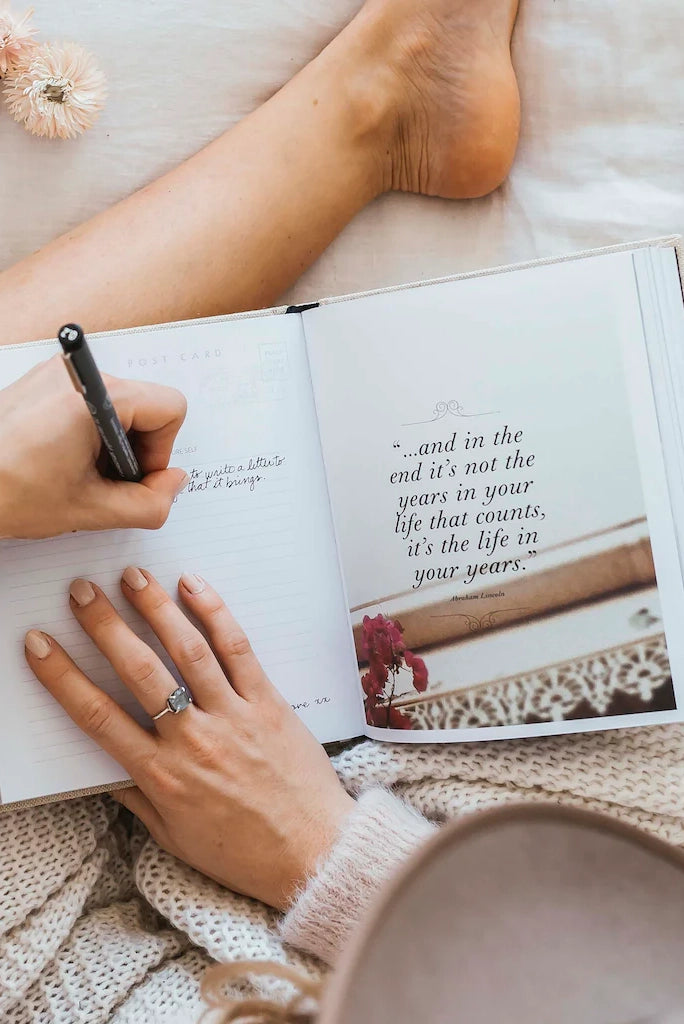 POST CARD
to write a letter to
that it brings.
xx
“...and in the
end it’s not the
years in your
life that counts,
it’s the life in
your years.”
Abraham Lincoln